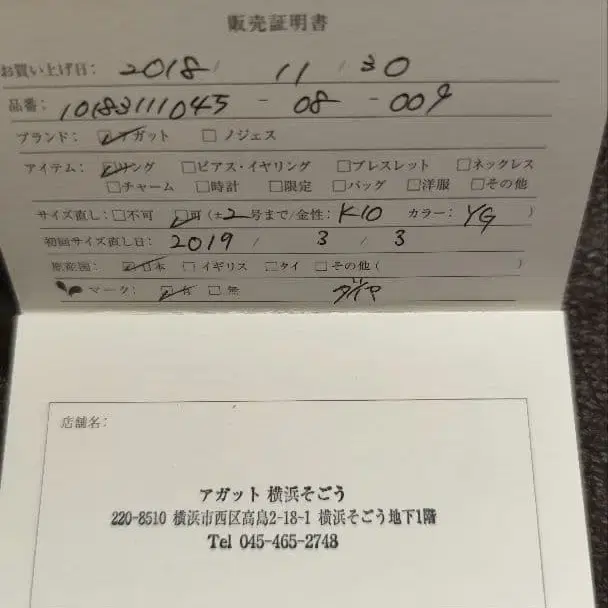 販売証明書
お買い上げ日: 2018 / 11 / 30
品番: 10183111045 - 08 - 009
ブランド: ☑アガット □ノジェス
アイテム: ☑リング □ピアス・イヤリング □ブレスレット □ネックレス
□チャーム □時計 □限定 □バッグ □洋服 □その他
サイズ直し: □不可 ☑可(±2号まで/金性: K10 カラー: YG )
初回サイズ直し日: 2019 / 3 / 3
原産国: ☑日本 □イギリス □タイ □その他( )
マーク: ☑有 □無 ダイヤ
店舗名:
アガット 横浜そごう
220-8510 横浜市西区高島2-18-1 横浜そごう地下1階
Tel 045-465-2748